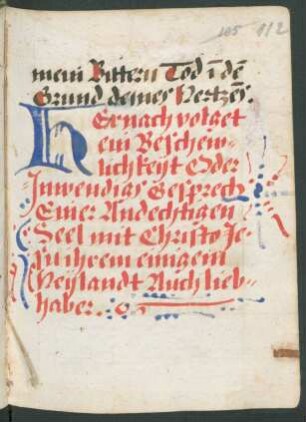 105 112
mein Bittern Tod i dē
Grund deines Hertzēs.
Hernach volget
ein Beschew-
lichkeyt Oder
Inwendigs Gesprech
Einer Andechtigen
Seel mit Christo Je-
su ihrem einigem
Heylandt Auch lieb-
haber.